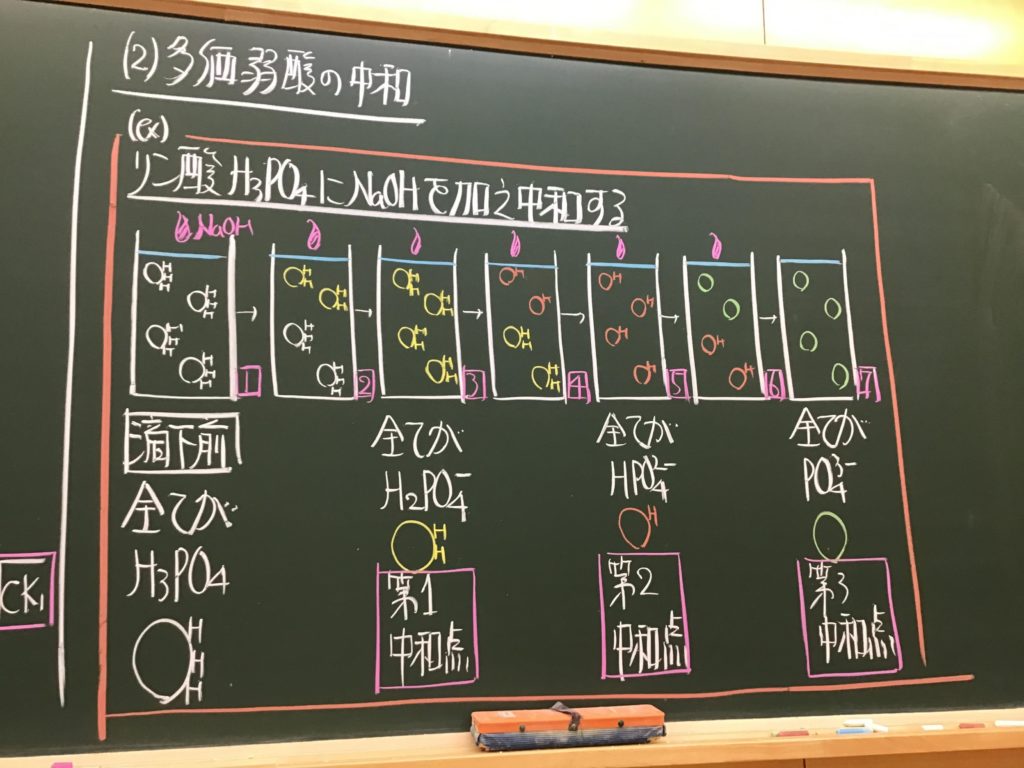 (2)多価弱酸の中和
(ex)
リン酸 H₃PO₄にNaOHを加え中和する
NaOH
① ② ③ ④ ⑤ ⑥ ⑦
滴下前
全てが
H₃PO₄
H
H
H
全てが
H₂PO₄⁻
H
H
第1
中和点
全てが
HPO₄²⁻
H
第2
中和点
全てが
PO₄³⁻
第3
中和点
CK₁